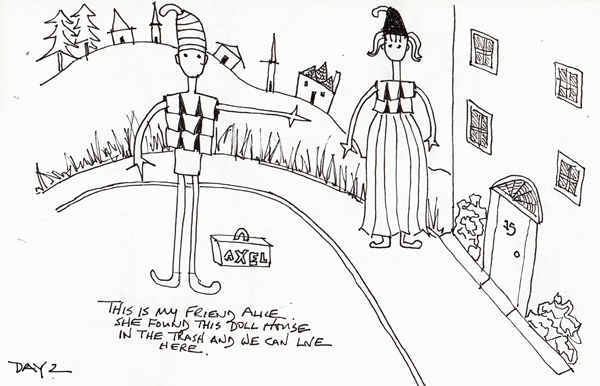 15
AXEL
THIS IS MY FRIEND ALICE.
SHE FOUND THIS DOLL HOUSE
IN THE TRASH AND WE CAN LIVE
HERE.
DAY 2